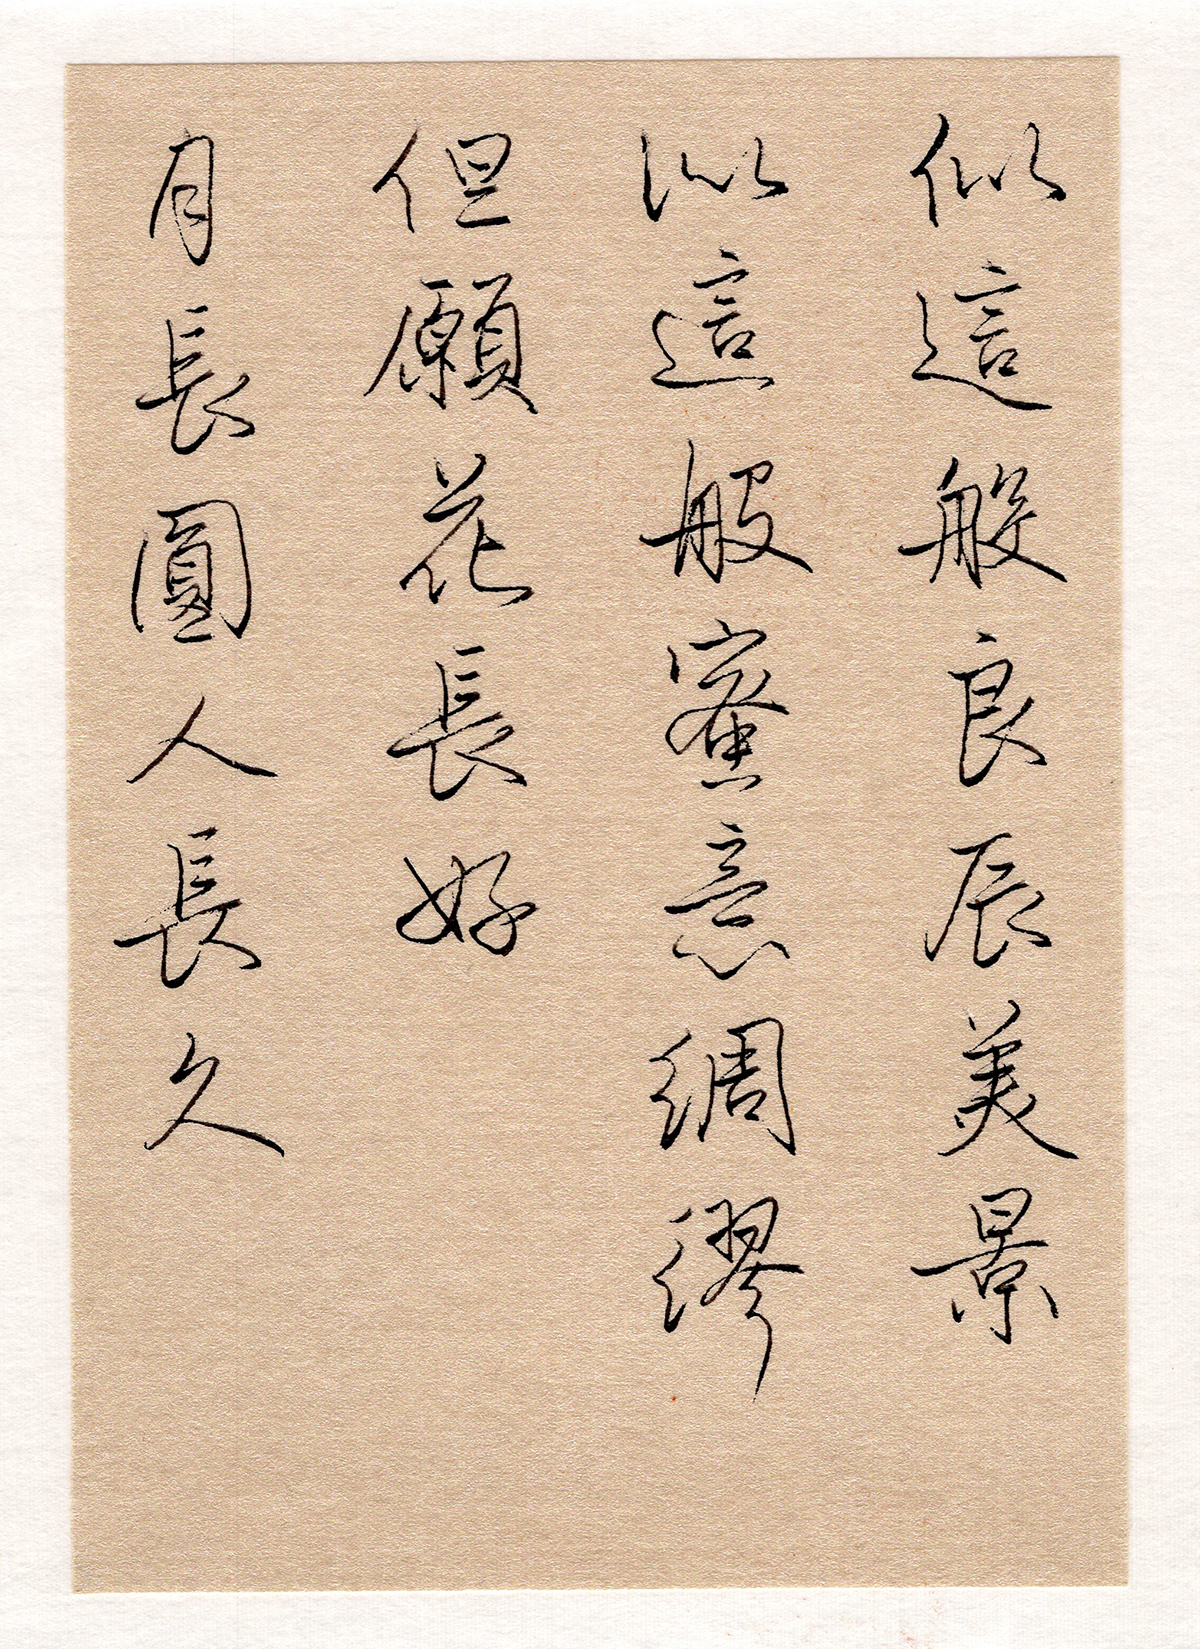 似這般良辰美景
似這般蜜意綢繆
但願花長好
月長圓人長久